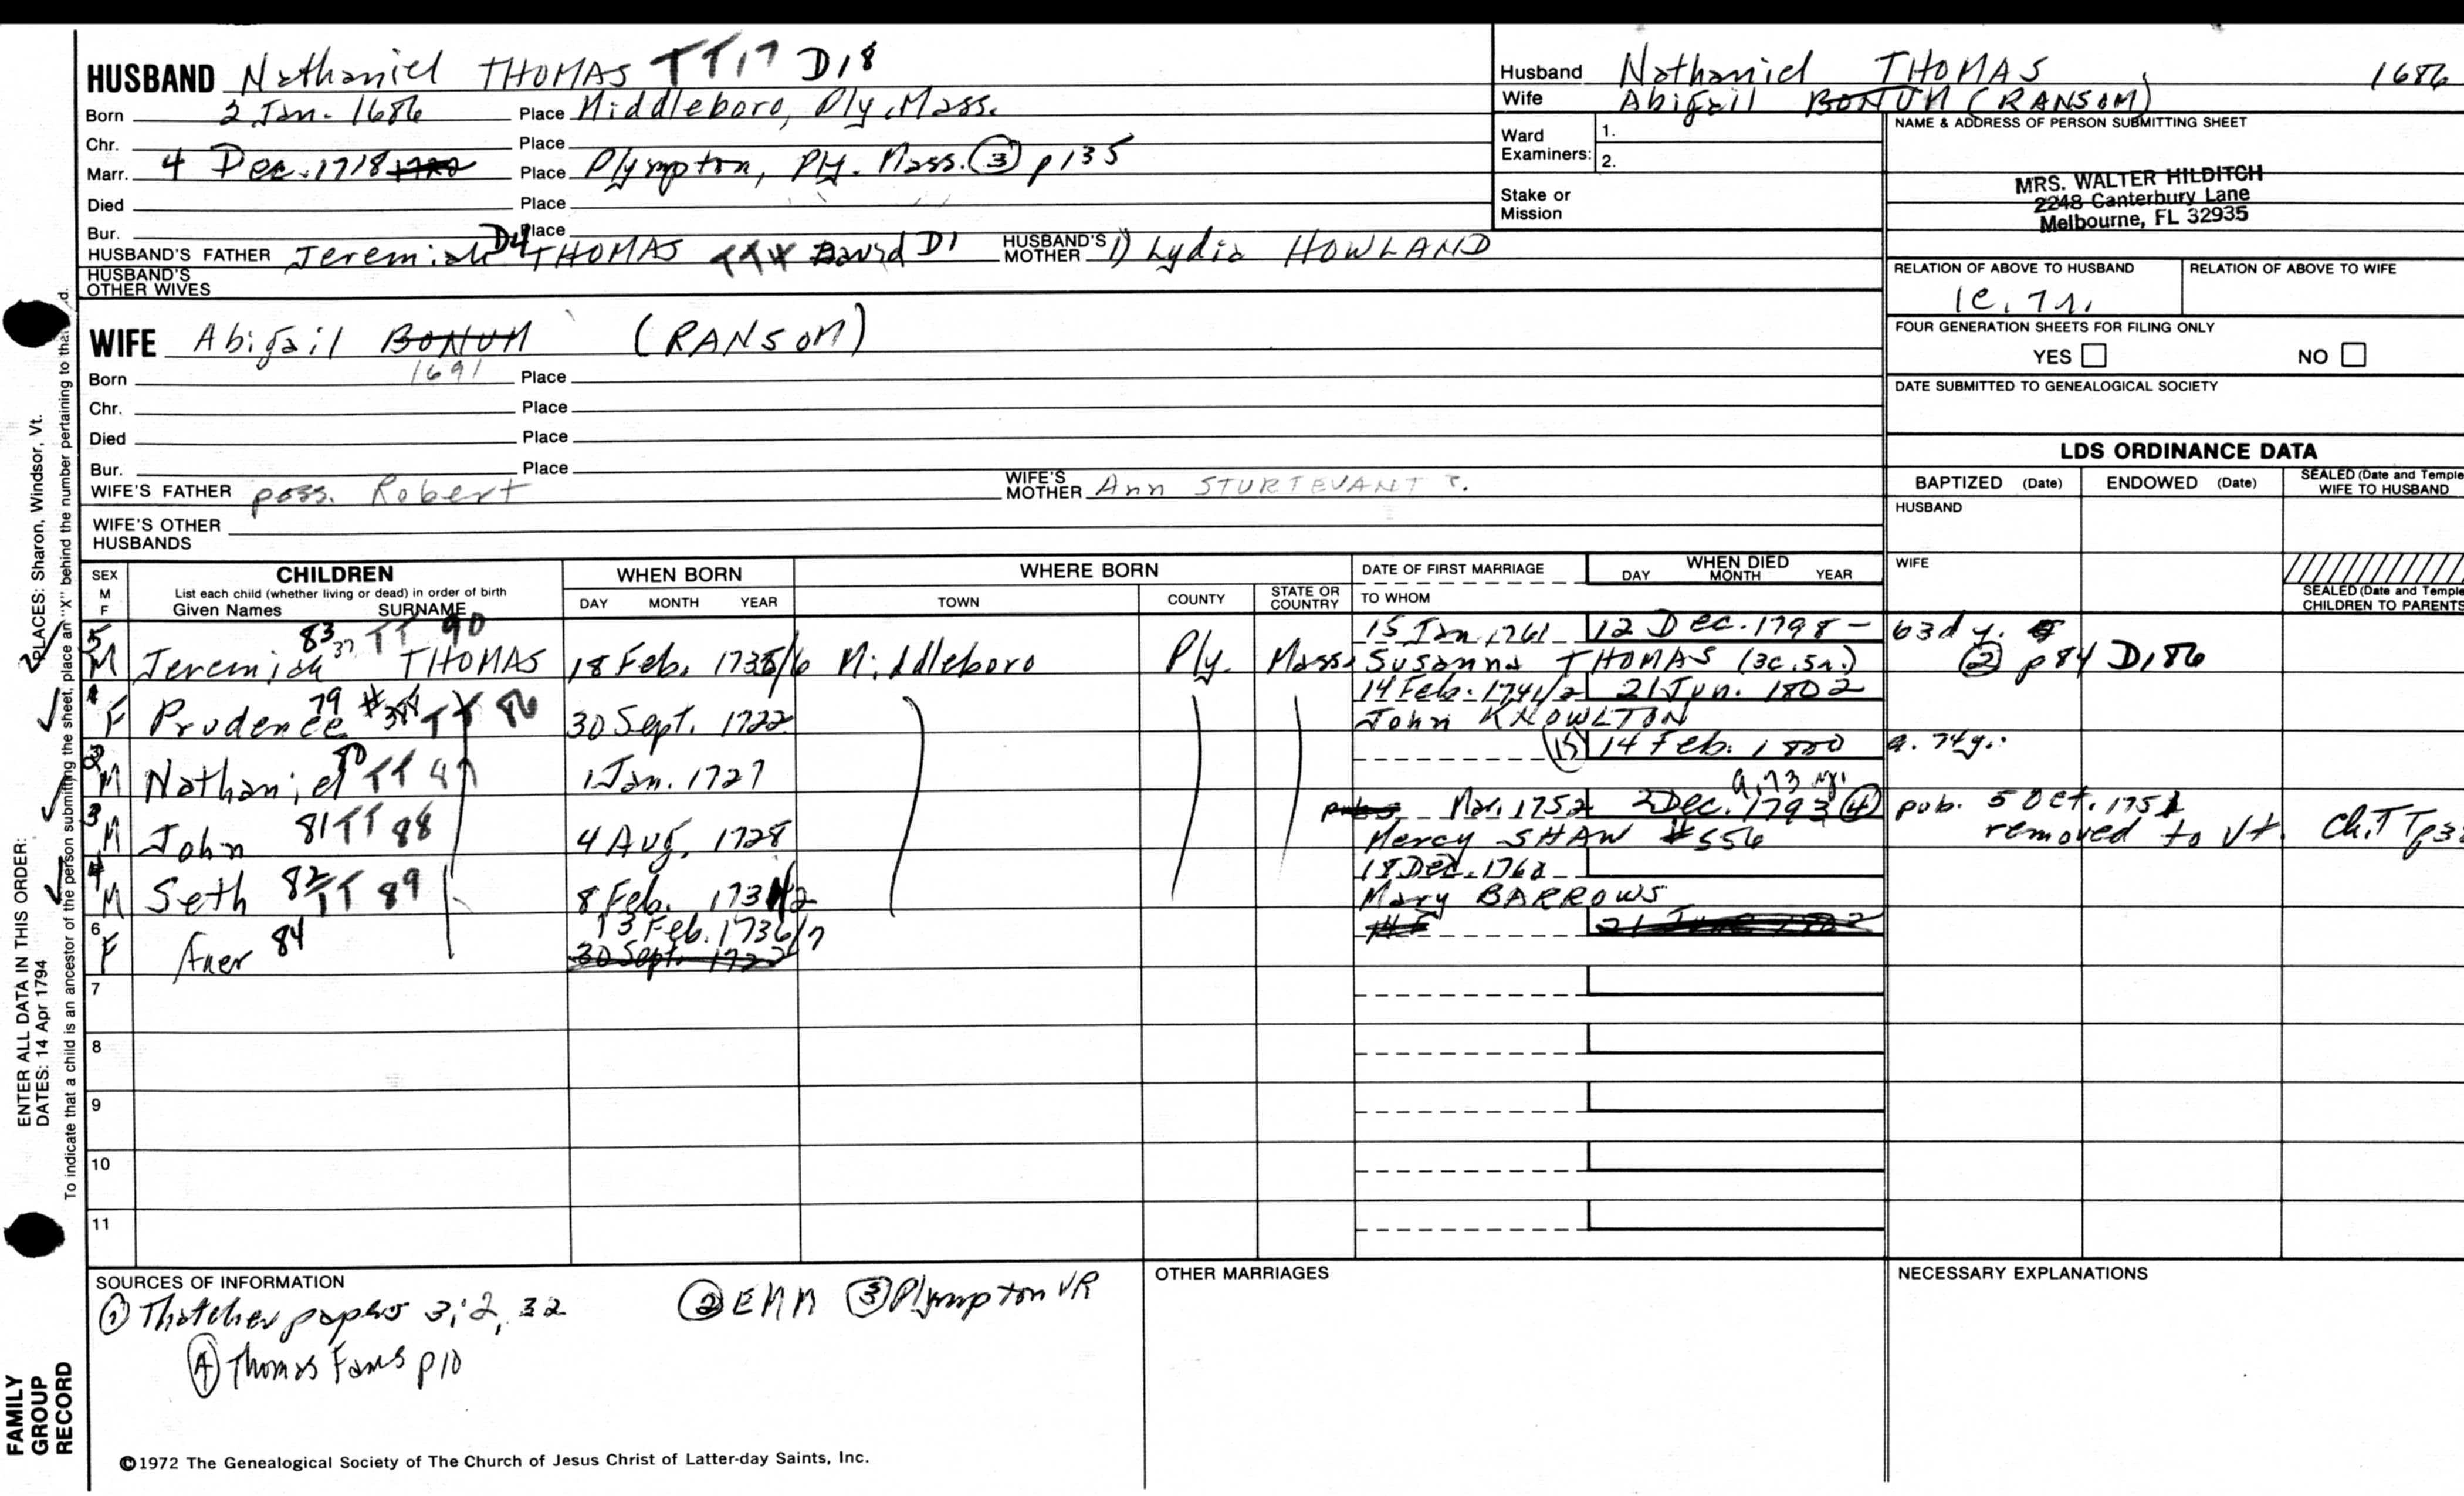 HUSBAND Nathaniel THOMAS TT17 D18
Born 2 Jan. 1686 Place Middleboro, Ply. Mass.
Chr. Place
Marr. 4 Dec. 1718 Place Plympton, Ply. Mass. (3) p135
Died Place
Bur. Place
HUSBAND'S FATHER Jeremiah D4 THOMAS David D1 HUSBAND'S MOTHER 1) Lydia HOWLAND
HUSBAND'S OTHER WIVES
Husband Nathaniel THOMAS 1686
Wife Abigail BONUM (RANSOM)
Ward Examiners: 1.
2.
Stake or Mission
NAME & ADDRESS OF PERSON SUBMITTING SHEET
MRS. WALTER HILDITCH
2248 Canterbury Lane
Melbourne, FL 32935
RELATION OF ABOVE TO HUSBAND RELATION OF ABOVE TO WIFE
1c. 7r.
FOUR GENERATION SHEETS FOR FILING ONLY
YES NO
DATE SUBMITTED TO GENEALOGICAL SOCIETY
WIFE Abigail BONUM (RANSOM)
Born 1691 Place
Chr. Place
Died Place
Bur. Place
WIFE'S FATHER poss. Robert WIFE'S MOTHER Ann STURTEVANT ?.
WIFE'S OTHER HUSBANDS
LDS ORDINANCE DATA
BAPTIZED (Date) ENDOWED (Date) SEALED (Date and Temple) WIFE TO HUSBAND
HUSBAND
WIFE
SEALED (Date and Temple) CHILDREN TO PARENTS
SEX M F CHILDREN WHEN BORN WHERE BORN DATE OF FIRST MARRIAGE WHEN DIED
List each child (whether living or dead) in order of birth
Given Names SURNAME DAY MONTH YEAR TOWN COUNTY STATE OR COUNTRY TO WHOM DAY MONTH YEAR
83 37 TT 90 15 Jan. 1761 12 Dec. 1798 – 63d y.
5 M Jeremiah THOMAS 18 Feb. 1735/6 Middleboro Ply. Mass. Susanna THOMAS (3c.5r.) (2) p84 D186
79 14 Feb. 1741/2 21 Jun. 1802
1 F Prudence TT 86 30 Sept. 1722 John KNOWLTON
80 (15) 14 Feb. 1800 a. 74y.
2 M Nathaniel TT 87 1 Jan. 1727
a. 73 yr.
81 Mar. 1752 2 Dec. 1793 (4) pub. 5 Oct. 1751
3 M John TT 88 4 Aug. 1728 Mercy SHAW #556 removed to Vt. Ch. TT
82 18 Dec. 1762
4 M Seth TT 89 8 Feb. 1731/2 Mary BARROWS
13 Feb. 1736/7 21 June 1802
6 F 84 30 Sept. 1722
7
8
9
10
11
SOURCES OF INFORMATION
(1) Thatcher papers 3; 2, 32 (2) EMM (3) Plympton VR
(4) Thomas Fams p10
OTHER MARRIAGES
NECESSARY EXPLANATIONS
©1972 The Genealogical Society of The Church of Jesus Christ of Latter-day Saints, Inc.
ENTER ALL DATA IN THIS ORDER:
DATES: 14 Apr 1794
PLACES: Sharon, Windsor, Vt.
To indicate that a child is an ancestor of the person submitting the sheet, place an "X" behind the number pertaining to that
FAMILY
GROUP
RECORD